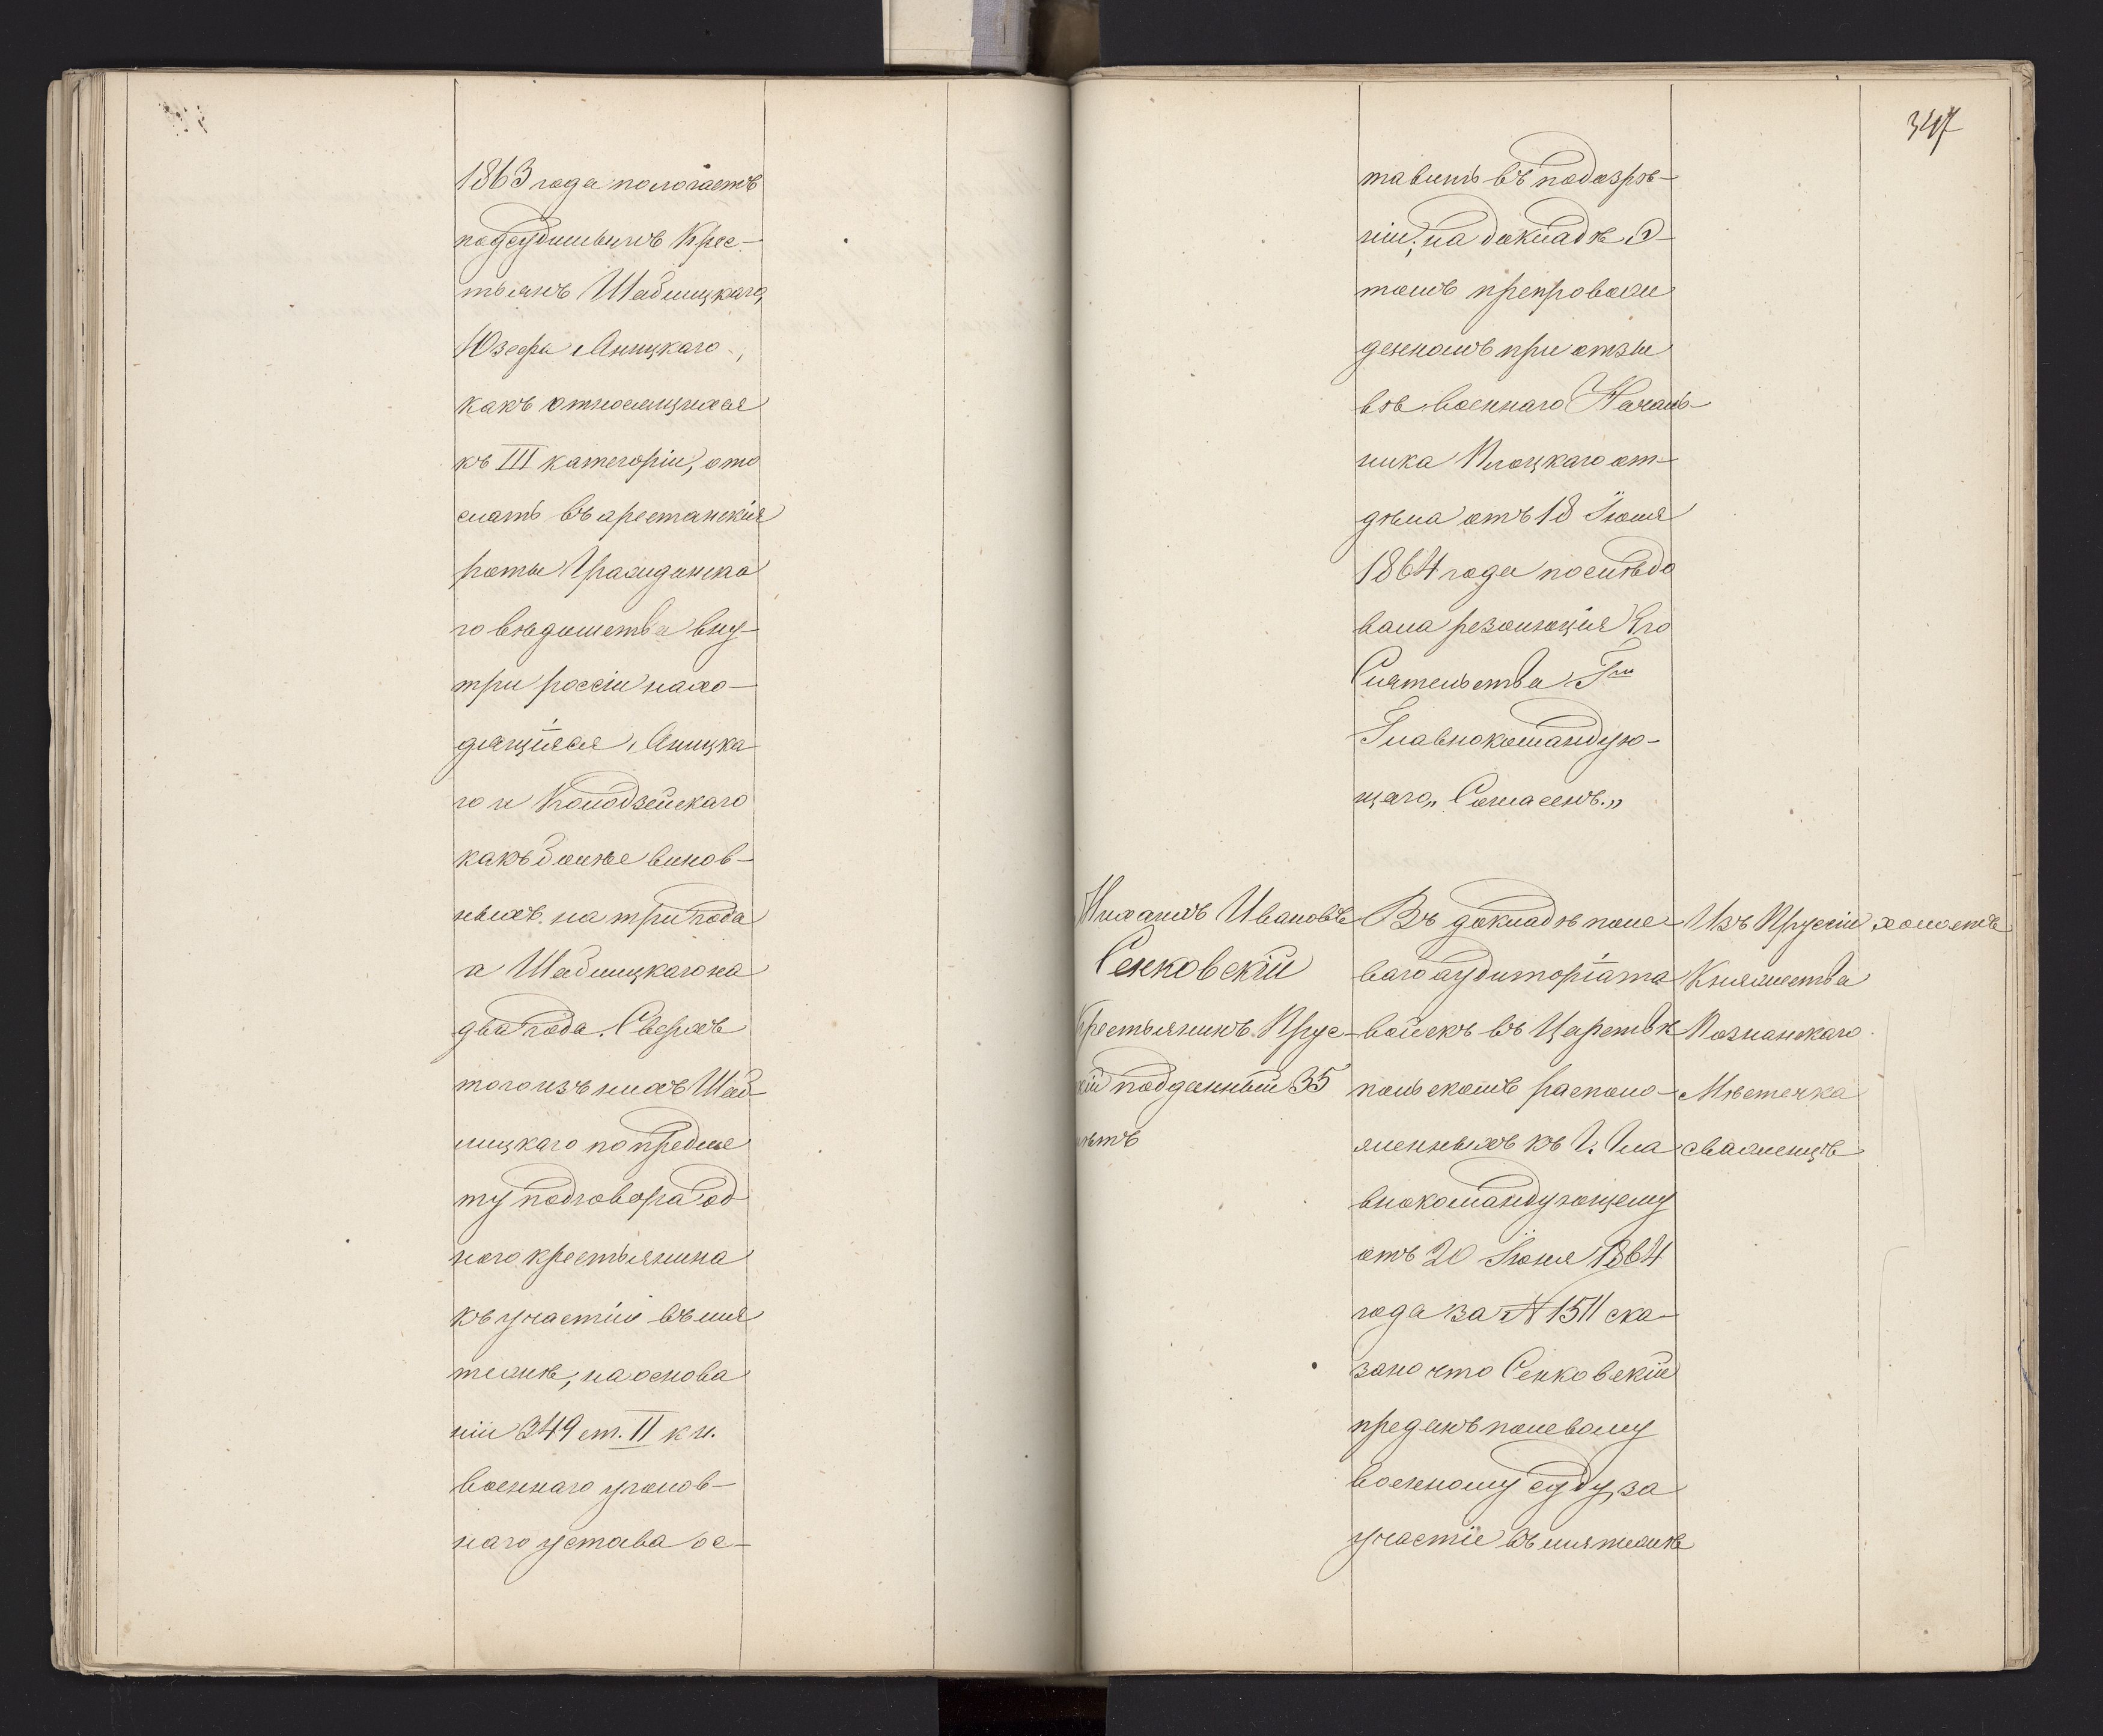 1863 года пологаетъ
подсудимыхъ Крес-
тьянъ Шаблицкаго,
Юзефа Липицкаго,
какъ относящихся
къ III категоріи, ото
слать въ арестанскія
роты Гражданска
го вѣдомства вну-
три россіи нахо-
дящіяся, Липицка
го и Колодзейскаго
какъ болѣе винов-
ныхъ на три года
а Шаблицкаго на
два года. Сверхъ
того изъ нихъ Шаб-
лицкаго по предме
ту подговора од
ного крестьянина
къ участію въ мя
тежѣ, на основа
ніи 349 ст. II кн.
военнаго уголов-
наго устава ос-
347
тавить въ подозрѣ-
ніи; на докладѣ э-
томъ препровож
денномъ при отзы
вѣ военнаго Началь-
ника Плоцкаго от-
дѣла отъ 18 Іюня
1864 года послѣдо
вала резолюція Его
Сіятельства Гна
Главнокомандую-
щаго „Согласенъ.„
Михаилъ Ивановъ
Сенковскій
Крестьянинъ Прус-
кій подданный 35
лѣтъ
Въ докладѣ поле
ваго аудиторіата
войскъ въ Царствѣ
польскомъ располо-
женныхъ къ Г. Гла
внокомандующему
отъ 20 Іюня 1864
года за № 1511 ска-
зано что Сенковскій
преданъ полевому
военному суду, за
участіе въ мятежѣ
Изъ Пруссіи
Княжества
Познанскаго
Мѣстечка
холостъ